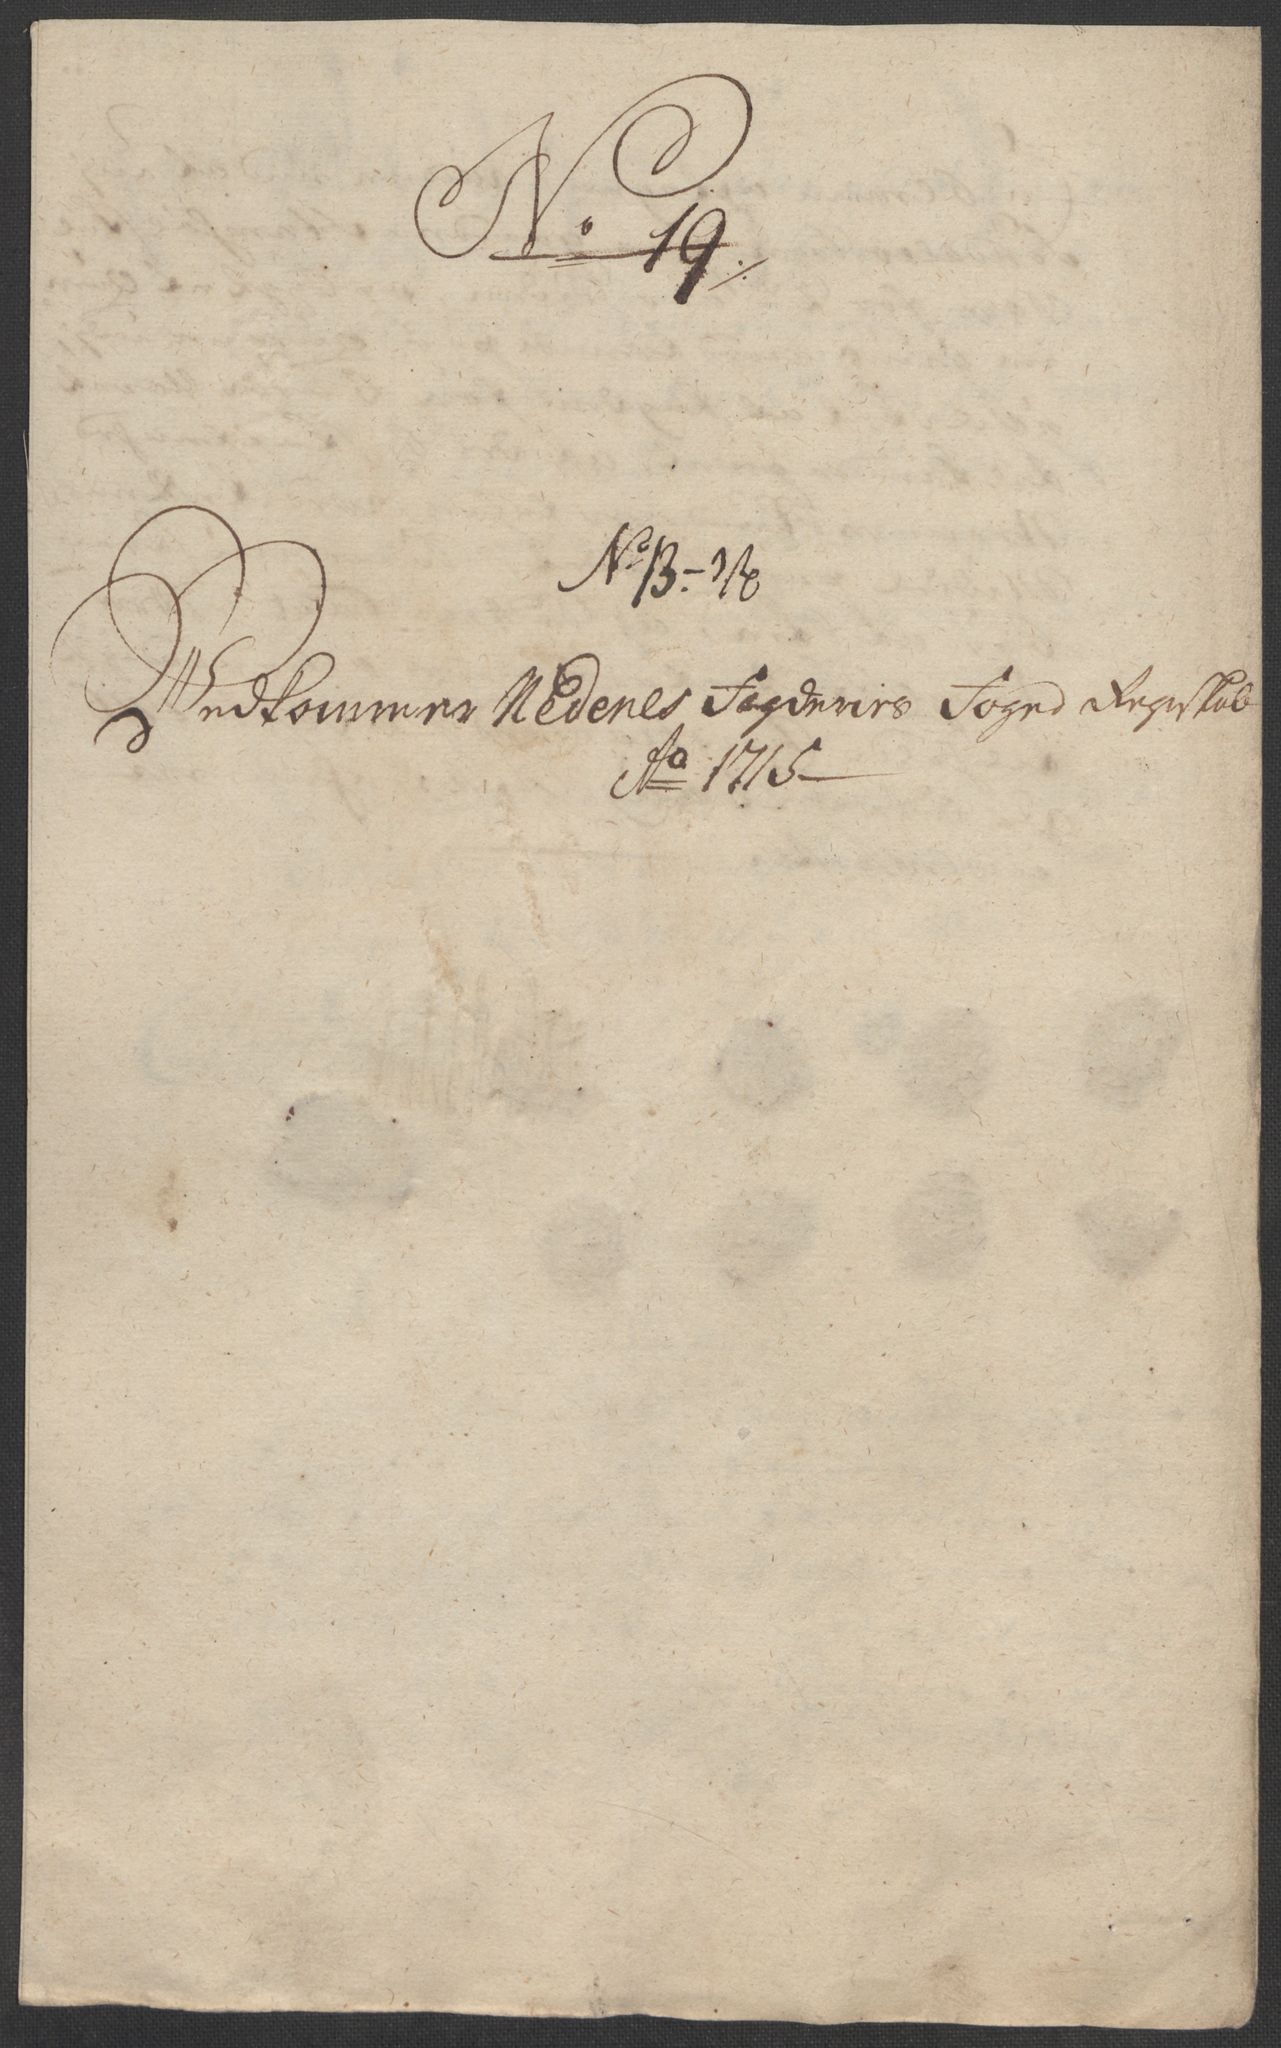 No 19.
No 13.
Vedkommer Nedenes Fogderies Foged Regnskab
Ao 1715